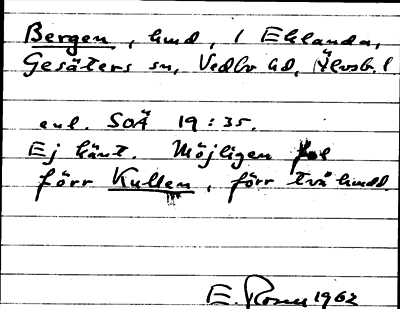 Bergen, hmd, 1 Eklanda,
Gesäters sn, Vedbo hd, Älvsb. l
enl. SOÄ 19:35.
Ej känt. Möjligen
förr Kullen, förr två hmd.
E. Rosen 1962